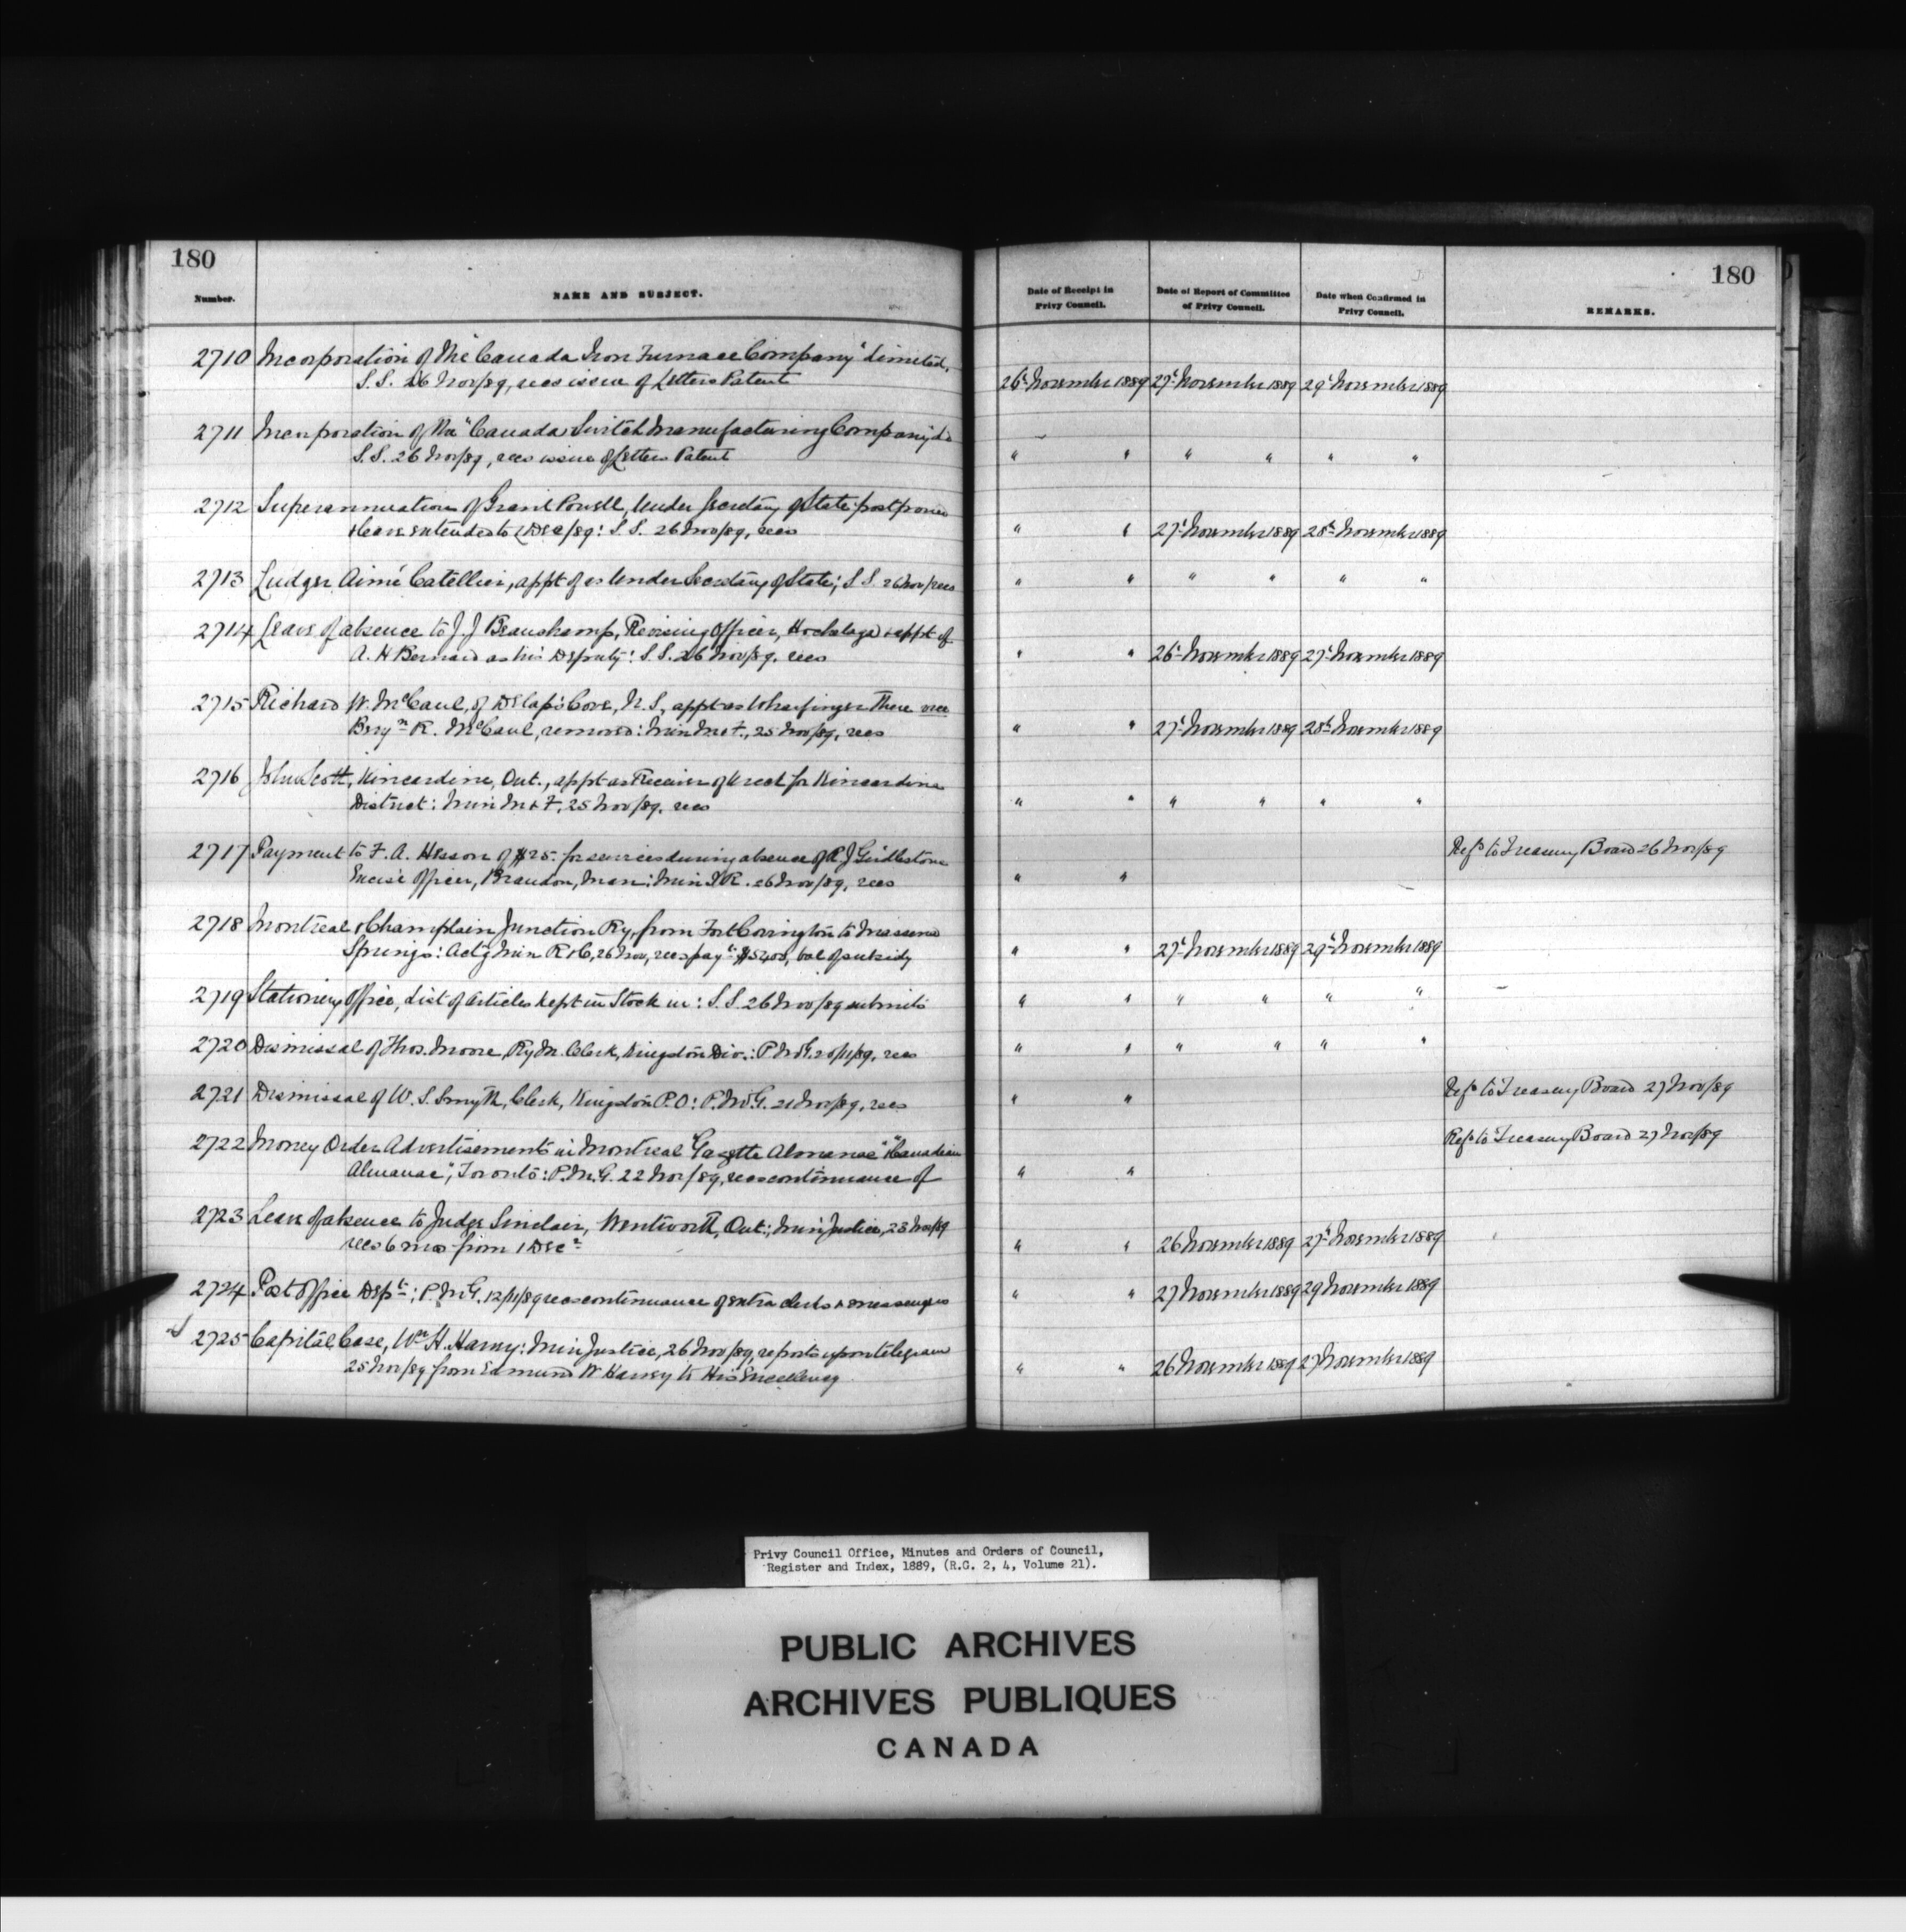 180
180
Number.
NAME AND SUBJECT.
Date of Receipt in
Privy Council.
Date of Report of Committee
of Privy Council.
Date when Confirmed in
Privy Council.
REMARKS.
2710 Incorporation of The "Canada Iron Furnace Company" Limited,
S.S. 26 Nov/89, recs issue of Letters Patent
26t November 1889 27t November 1889 29t November 1889
2711 Incorporation of the "Canada Switch Manufacturing Company" Ld
S.S. 26 Nov/89, recs issue of Letters Patent
" " " " " "
2712 Superannuation of Grant Powell, Under Secretary of State postponed
& leave extended to 1 Dec/89: S.S. 26 Nov/89, recs
" " 27t November 1889 28th November 1889
2713 Ludger Aimé Catellier, appt of as Under Secretary of State; S.S. 26 Nov/ recs
" " " " " "
2714 Leave of absence to J. J Beauchamp, Revising Officer, Hochelaga & appt of
A. H Bernard as his Deputy: S.S. 26 Nov/89, recs
" " 26t November 1889 27t November 1889
2715 Richard W. McCaul, of Delap's Cove, N.S, appt as Wharfinger There vice
Benjn R. McCaul, removed: Min M & F., 25 Nov/89, recs
" " 27t November 1889 28th November 1889
2716 John Scott, Kincardine, Ont., appt as Receiver of Wreck for Kincardine
District: Min M & F, 25 Nov/89, recs
" " " " " "
2717 Payment to F. A. Hesson of $25. for services during absence of R J Girdlestone
Excise Officer, Brandon, Man: Min I R. 26 Nov/89, recs
" " Refd to Treasury Board 26 Nov/89
2718 Montreal & Champlain Junction Ry, from Fort Covington to Massena
Springs: Actg Min R & C, 26 Nov, recs payt $5400, bal of subsidy
" " 27t November 1889 29t November 1889
2719 Stationery Office, List of articles kept in Stock in: S.S. 26 Nov/89 submits
" " " " " "
2720 Dismissal of Thos. Moore, Ry M. Clerk, Kingston Div.: P.M.G. 20/11/89, recs
" " " " " "
2721 Dismissal of W. S. Smyth, Clerk, Kingston P.O: P.M.G. 21 Nov/89, recs
" " Refd to Treasury Board 27 Nov/89
2722 Money Order Advertisements in Montreal "Gazette Almanac" "Canadian
Almanac", Toronto: P.M.G. 22 Nov/89, recs continuance of
" " Refd to Treasury Board 27 Nov/89
2723 Leave of absence to Judge Sinclair, Wentworth, Ont; Min Justice, 23 Nov/89
recs 6 mos from 1 Decr
" " 26 November 1889 27th November 1889
2724 Post Office Dept; P.M.G. 12/11/89 recs continuance of extra clerks & messengers
" " 27 November 1889 29 November 1889
2725 Capital Case, Wm H. Harvey: Min Justice, 26 Nov/89, reports upon telegram
25 Nov/89 from Edmund W Harvey to His Excellency
" " 26 November 1889 27 November 1889
Privy Council Office, Minutes and Orders of Council,
Register and Index, 1889, (R.G. 2, 4, Volume 21).
PUBLIC ARCHIVES
ARCHIVES PUBLIQUES
CANADA